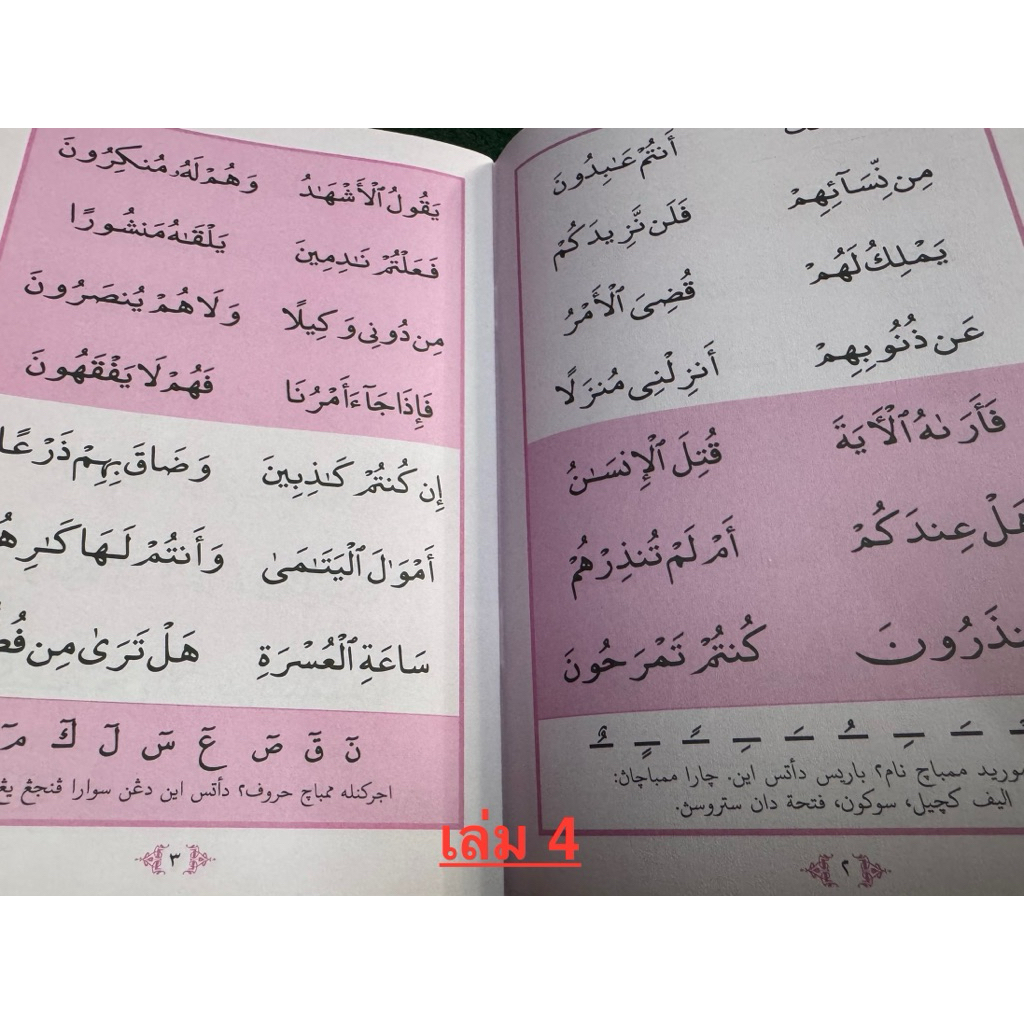 أَنتُمْ عَٰبِدُونَ
مِن نِّسَآئِهِمْ فَلَن نَّزِيدَكُمْ
يَمْلِكُ لَهُمْ قُضِىَ ٱلْأَمْرُ
عَن ذُنُوبِهِمْ أَنزِلْنِى مُنزَلًا
فَأَرَىٰهُ ٱلْأَيَةَ قُتِلَ ٱلْإِنسَٰنُ
هَلْ عِندَكُمْ أَمْ لَمْ تُنذِرْهُمْ
كُنتُمْ تَمْرَحُونَ
ممباچ نام٢ باريس دأتس اين. چارا ممباچاڽ:
اليف كچيل، سوكون، فتحة دان ستروسڽ.
٢
يَقُولُ ٱلْأَشْهَٰدُ وَهُمْ لَهُۥ مُنكِرُونَ
فَعَلْتُمْ نَٰدِمِينَ يَلْقَىٰهُ مَنشُورًا
مِن دُونِى وَكِيلًا وَلَا هُمْ يُنصَرُونَ
فَإِذَا جَآءَ أَمْرُنَا فَهُمْ لَا يَفْقَهُونَ
إِن كُنتُمْ كَٰذِبِينَ وَضَاقَ بِهِمْ ذَرْعًا
أَمْوَٰلَ ٱلْيَتَٰمَىٰ وَأَنتُمْ لَهَا
سَاعَةِ ٱلْعُسْرَةِ هَلْ تَرَىٰ مِن
نٓ قٓ صٓ عٓ سٓ لٓ كٓ مٓ
اجركنله ممباچ حروف٢ دأتس اين دڠن سوارا ڤنجڠ يڠ
٣
เล่ม 4